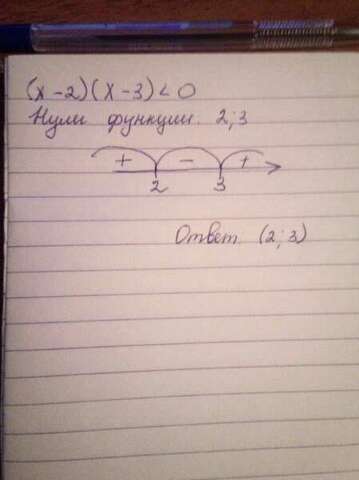 (x-2)(x-3)<0
Нули функции. 2;3
+ - +
2 3
Ответ (2;3)